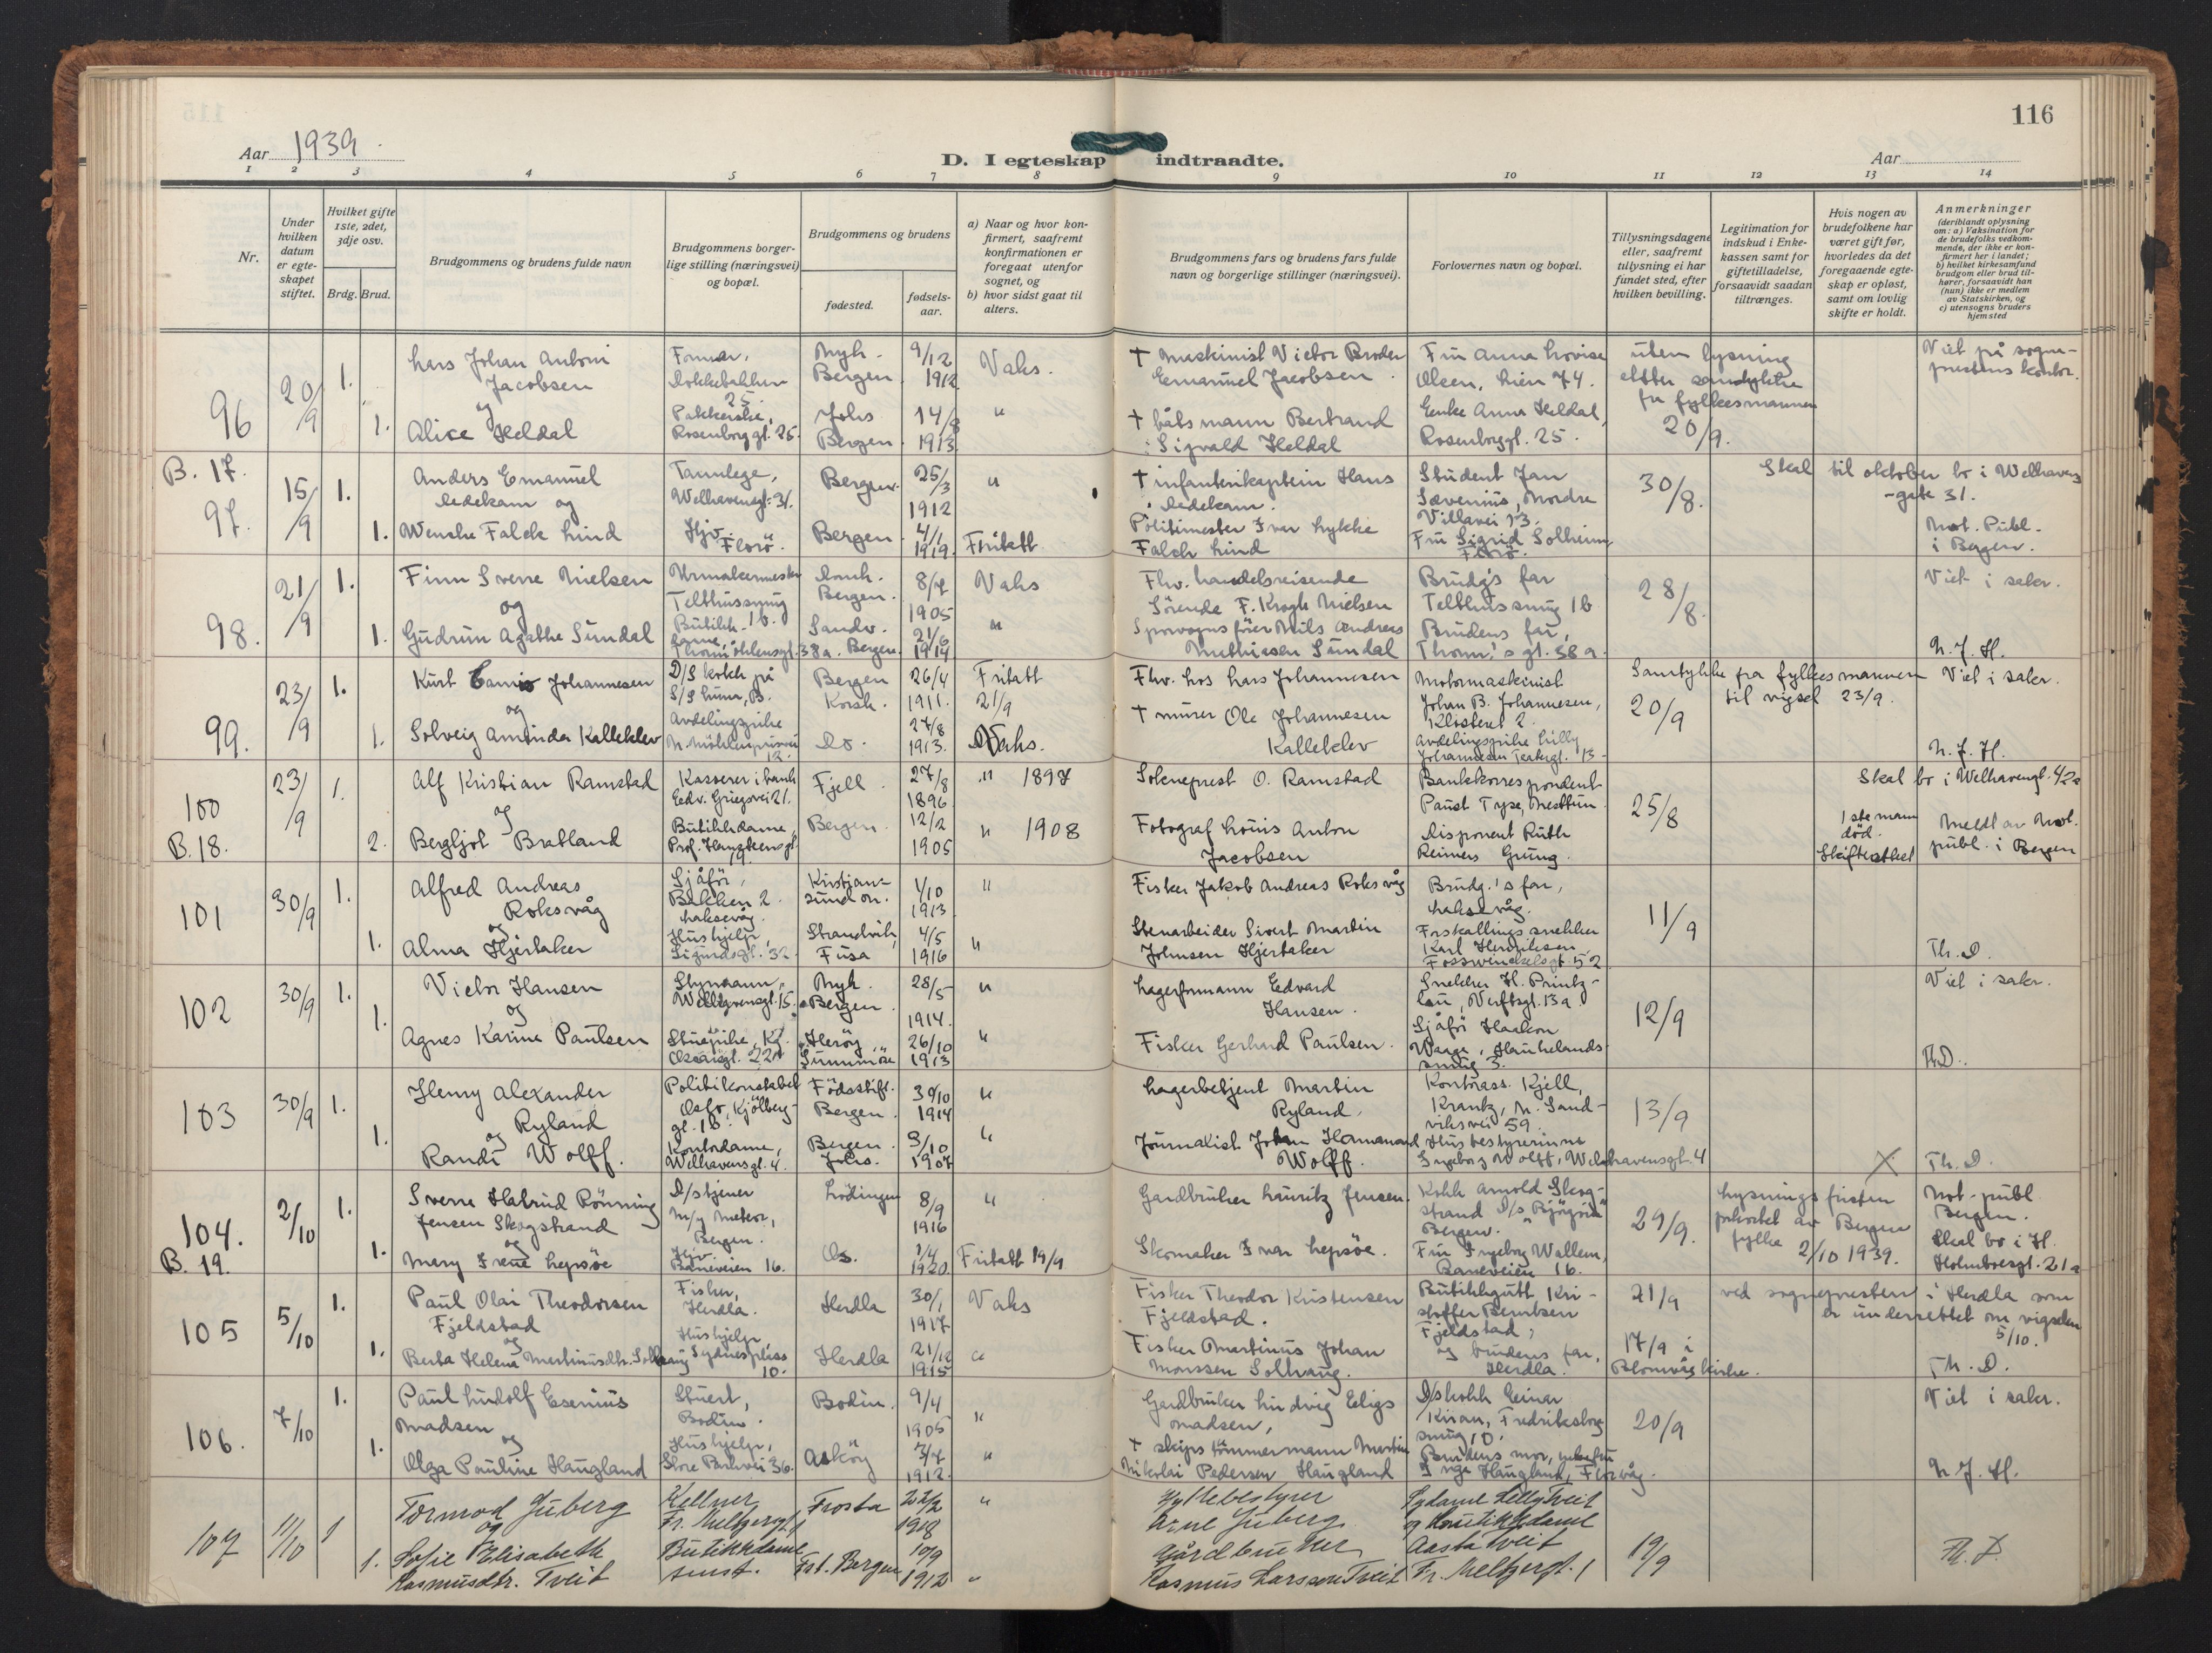 116
Aar 1939.
D. I egteskap indtraadte.
Aar
1 2 3 4 5 6 7 8 9 10 11 12 13 14
Nr.
Under hvilken datum er egte-skapet stiftet.
Hvilket gifte 1ste, 2det, 3dje osv.
Brdg. Brud.
Brudgommens og brudens fulde navn
Brudgommens borger-lige stilling (næringsvei) og bopæl.
Brudgommens og brudens
fødested.
fødsels-aar.
a) Naar og hvor kon-firmert, saafremt konfirmationen er foregaat utenfor sognet, og
b) hvor sidst gaat til alters.
Brudgommens fars og brudens fars fulde navn og borgerlige stillinger (næringsvei).
Forlovernes navn og bopæl.
Tillysningsdagene eller, saafremt tillysning ei har fundet sted, efter hvilken bevilling.
Legitimation for indskud i Enke-kassen samt for giftetilladelse, forsaavidt saadan tiltrænges.
Hvis nogen av brudefolkene har været gift før, hvorledes da det foregaaende egte-skap er opløst, samt om lovlig skifte er holdt.
Anmerkninger
(deriblandt oplysning om: a) Vaksination for de brudefolks vedkom-mende, der ikke er kon-firmert her i landet; b) hvilket kirkesamfund brudgom eller brud til-hører, forsaavidt han (hun) ikke er medlem av Statskirken, og c) utensogns bruders hjemsted
96 20/9 1. Lars Johan Antoni Jacobsen
Formar, Dokkebakken 25.
Nyk. Bergen 9/12 1912 Vaks.
† Maskinist Victor Broder Emanuel Jacobsen.
Fru Anna Lovise Olsen, Lien 74.
uten lysning etter samtykke fra fylkesmannen 20/9.
Viet på sogne-prestens kontor.
og
1. Alice Heldal
Pakkerske, Rosenborggt. 25.
Johs Bergen 14/8 1913 "
† båtsmann Bertrand Sigvald Heldal
Enke Anna Heldal, Rosenborggt. 25.
B. 17.
97. 15/9 1. Anders Emanuel Dedekam og
Tannlege, Welhavensgt. 31.
Bergen. 25/3 1912 "
† infanterikaptein Hans Dedekam.
Student Jan Sævenius, Nordre Villavei 13.
30/8.
Skal til oktober bo i Welhavens-gate 31.
1. Wenche Falck Lind
Hjv. Florö.
Bergen 4/1 1919. Fritatt
Politimester Iver Lykke Falch Lind
Fru Sigrid Solheim Florö.
Not. Publ. i Bergen.
98. 21/9 1. Finn Sverre Nielsen
Urmakermester Telthussmug 1b.
Domk. Bergen. 8/7 1905 Vaks
Fhv. handelsreisende Sörende F. Krogh Nielsen
Brudg's far Telthussmug 1b
28/8.
Viet i sakr.
og
1. Gudrun Agathe Sundal
Butikk-dame, Thormöhlensgt. 38a.
Sandv. Bergen. 21/6 1914 "
Sporvognsförer Nils Andreas Mathiesen Sundal
Brudens far, Thorm.'s gt. 38a.
N. J. H.
99. 23/9 1. Kurt Camio Johannesen
D/S kokk på S/S Lunn, B.
Bergen Korsk. 26/4 1911. Fritatt 21/9
Fhv. los Lars Johannesen
Motormaskinist Johan B. Johannesen, Klosteret 2.
20/9
Samtykke fra fylkesmannen til vigsel 23/9.
Viet i sakr.
og
1. Solveig Aminda Kalleklev
Avdelingspike N. Möhlenprisvei 12.
Do. 27/8 1913. Vaks.
† murer Ole Johannesen Kalleklev
Avdelingspike Lilly Johannesen 13.
N. J. H.
100 23/9 1. Alf Kristian Ramstad
Kasserer i bank Edv. Griegsvei 21.
Fjell. 27/8 1896. " 1897
Sokneprest O. Ramstad
Bankkorrespondent Paust Type, Nesttun.
25/8
Skal bo i Welhavengt. 42a
og
B. 18. 2. Bergljot Bratland
Butikkdame, Prof. Hansteensgt. 19.
Bergen. 12/2 1905 " 1908
Fotograf Louis Anton Jacobsen
Disponent Ruth Reimers Grung.
1ste mann död. Skifteattest
Meldt av Not. publ. i Bergen
101 30/9 1. Alfred Andreas Roksvåg
Sjåför, Bakken 2. Laksevåg.
Kristian-sund N. 1/10 1913 "
Fisker Jakob Andreas Roksvåg
Brudg.'s far, Laksevåg.
11/9
og
1. Alma Hjertaker
Hushjelp, Sigurdsgt. 32.
Strandvik, Fusa 4/5 1916 "
Stenarbeider Sivert Martin Johnsen Hjertaker
Forskallingssnekker Karl Henriksen, Fosswinckelsgt. 52
Th. D.
102 30/9 1. Victor Hansen
Styrmann, Welhavensgt. 15.
Nyk. Bergen. 28/5 1914. "
Lagerformann Edvard Hansen.
Snekker H. Printz-lau, Verftsgt. 13a.
12/9
Viet i sakr.
og
1. Agnes Karine Paulsen
Stuepike, Kg. Oscarsgt. 22.
Heröy, Sunnmöre 26/10 1913 "
Fisker Gerhard Paulsen.
Sjåför Haakon Waage, Haukelands-smug 3.
Th. D.
103 30/9 1. Henry Alexander Ryland
Politikonstabel Oslo, Kjölberg-gt. 16.
Födsstift. Bergen. 30/10 1914 "
Lagerbetjent Martin Ryland,
Kontorass. Kjell Krantz, N. Sand-viksvei 59.
13/9
og
1. Randi Wolff.
Kontordame, Welhavensgt. 4.
Bergen. Johs. 3/10 1907 "
Journalist Johan Hermann Wolff.
Husbestyrerinne Ingeborg Wolff, Welhavensgt. 4
X
Th. D.
104. 2/10 1. Sverre Halrud Rönning Jensen Skogstrand
D/stjener M/y Meteor, Bergen.
Lödingen 8/9 1916 "
Gardbruker Lauritz Jensen.
Kokk Arnold Skog-strand Bergen.
29/9.
Lysningsfristen forkortet av Bergen fylke 2/10 1939.
Not. publ. Bergen. Skal bo i H. Holmboesgt. 21a
og
B. 19. 1. Mary Irene Lepsöe
Hjv. Baneveien 16.
Os. 1/4 1920. Fritatt 19/9
Skomaker Ivar Lepsöe.
Fru Ingeborg Wallem, Baneveien 16.
105 5/10 1. Paul Olai Theodorsen Fjeldstad
Fisker, Herdla.
Herdla 30/1 1917. Vaks
Fisker Theodor Kristensen Fjeldstad.
Butikkgutt Kri-stoffer Berntsen Fjeldstad,
21/9
ved sognepresten i Herdla som er underrettet om vigselen 5/10.
og
1. Berta Helena Martinusdtr. Solhaug
Hushjelp, Sydnesplass 10.
Herdla 21/12 1915 "
Fisker Martinus Johan Monssen Solhaug.
og brudens far, Herdla.
17/9 i Blomvåg kirke.
Th. D.
106. 7/10 1. Paul Ludolf Esenius Madsen
Stuert, Bodin.
Bodin. 9/4 1905 "
Gardbruker Ludvig Eligs Madsen,
D/skokk Einar Kiran, Fredriksborg-smug 10.
20/9
Viet i sakr.
og
1. Olga Pauline Haugland
Hushjelp, Store Parkvei 36.
Asköy 3/7 1912. "
† skipstömmermann Martin Nikolai Pedersen Haugland
Brudens mor, Inga Haugland, Florvåg.
N. J. H.
107 11/10 1 Tormod Juberg
Kellner Fr. Meltzersgt. 1
Frosta 22/2 1918 "
Hyttebestyrer Arne Juberg
Sydame Lelly Tveit og butikkdame
og
1. Sofie Elisabeth Rasmusdtr. Tveit
Butikkdame smst.
Fst. Bergen 10/9 1912 "
Gårdbruker Rasmus Larssen Tveit
Aasta Tveit Fr. Meltzersgt. 1
19/9
Th. D.